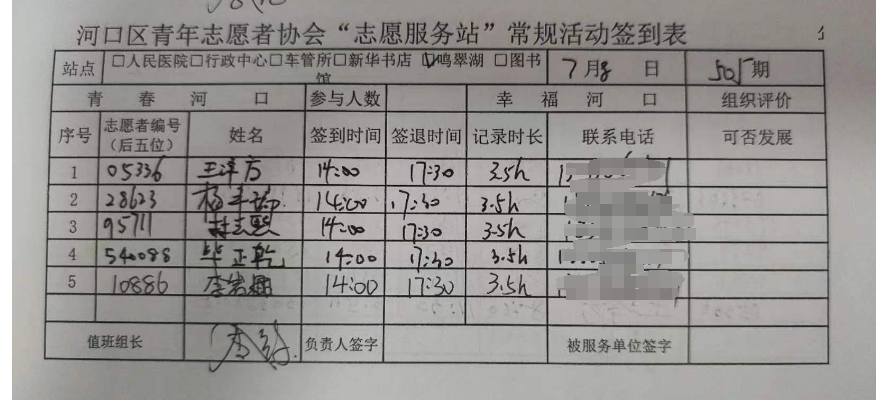 河口区青年志愿者协会“志愿服务站”常规活动签到表
站点 □人民医院□行政中心□车管所□新华书店 ☑鸣翠湖 □图书馆 7月8日 505期
青春河口 参与人数 幸福河口 组织评价
序号 志愿者编号（后五位） 姓名 签到时间 签退时间 记录时长 联系电话 可否发展
1 05336 14:00 17:30 3.5h
2 28623 14:00 17:30 3.5h
3 95711 14:00 17:30 3.5h
4 540088 毕正乾 14:00 17:30 3.5h
5 10886 14:00 17:30 3.5h
值班组长 负责人签字 被服务单位签字